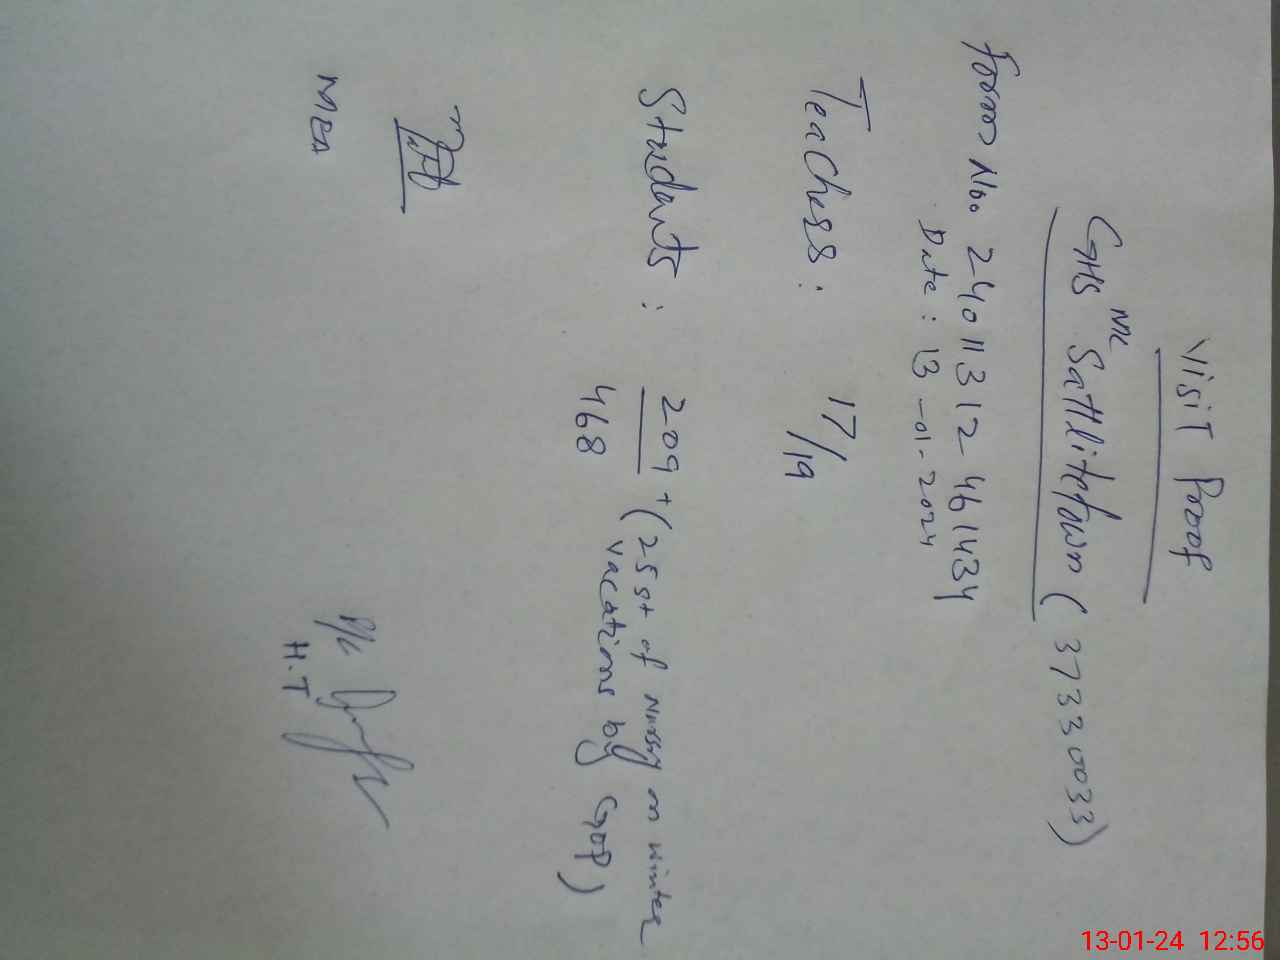 Visit Proof
GHS MC Sattlitetown (37330033)
Form No. 24011312461434
Date : 13-01-2024
Teachers : 17/19
Students : 209 + (25 st of Nursery on winter
468 vacations by GOP)
MEA
H.T
13-01-24 12:56